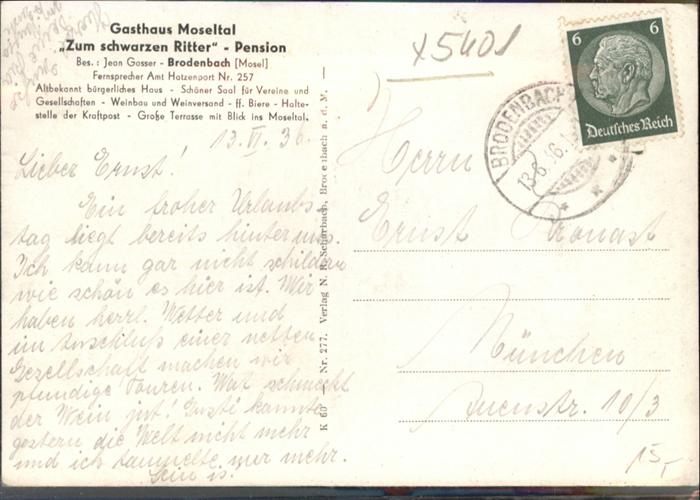 Gasthaus Moseltal
„Zum schwarzen Ritter“ - Pension
Bes.: Jean Gosser - Brodenbach [Mosel]
Fernsprecher Amt Hatzenport Nr. 257
Altbekannt bürgerliches Haus - Schöner Saal für Vereine und
Gesellschaften - Weinbau und Weinversand - ff. Biere - Halte-
stelle der Kraftpost - Große Terrasse mit Blick ins Moseltal.
13. VI. 36.
Lieber Ernst!
Ein froher Urlaubs
tag liegt bereits hinter uns.
Ich kann gar nicht schildern
wie schön es hier ist. Wir
haben herrl. Wetter und
im Anschluß einer netten
Gesellschaft machen wir
pfundige Touren. Was schmeckt
der Wein gut! Gusti kannte
gestern die Welt nicht mehr
und ich nur mehr.
K 60 — Nr. 277. Verlag N. F. Scharbach, Brodenbach a. d. M. —
x5401
6 6
Deutsches Reich
BRODENBACH
13.6.36.
Herrn
Ernst
München
Auenstr. 10/3
15,-